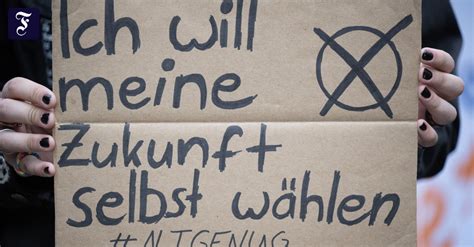 F
Ich will
meine
Zukunft
selbst wählen
#ALTGENUG